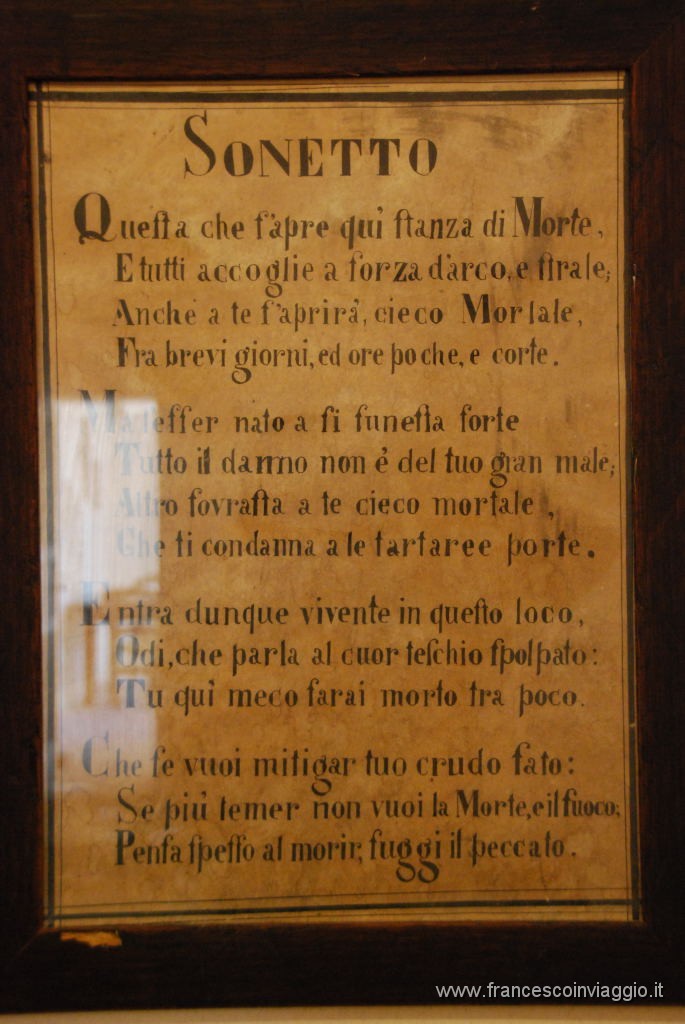 SONETTO
Queſta che ſ'apre qui ſtanza di Morte,
E tutti accoglie a forza d'arco, e ſtrale;
Anche a te ſ'aprirà, cieco Mortale,
Fra brevi giorni, ed ore poche, e corte.
Ma l'eſſer nato a ſi funeſta ſorte
Tutto il danno non è del tuo gran male;
Altro ſovraſta a te cieco mortale,
Che ti condanna a le tartaree porte.
Entra dunque vivente in queſto loco,
Odi, che parla al cuor teſchio ſpolpato:
Tu qui meco farai morto tra poco.
Che ſe vuoi mitigar tuo crudo fato:
Se più temer non vuoi la Morte, e il fuoco;
Penſa ſpeſſo al morir, fuggi il peccato.
www.francescoinviaggio.it